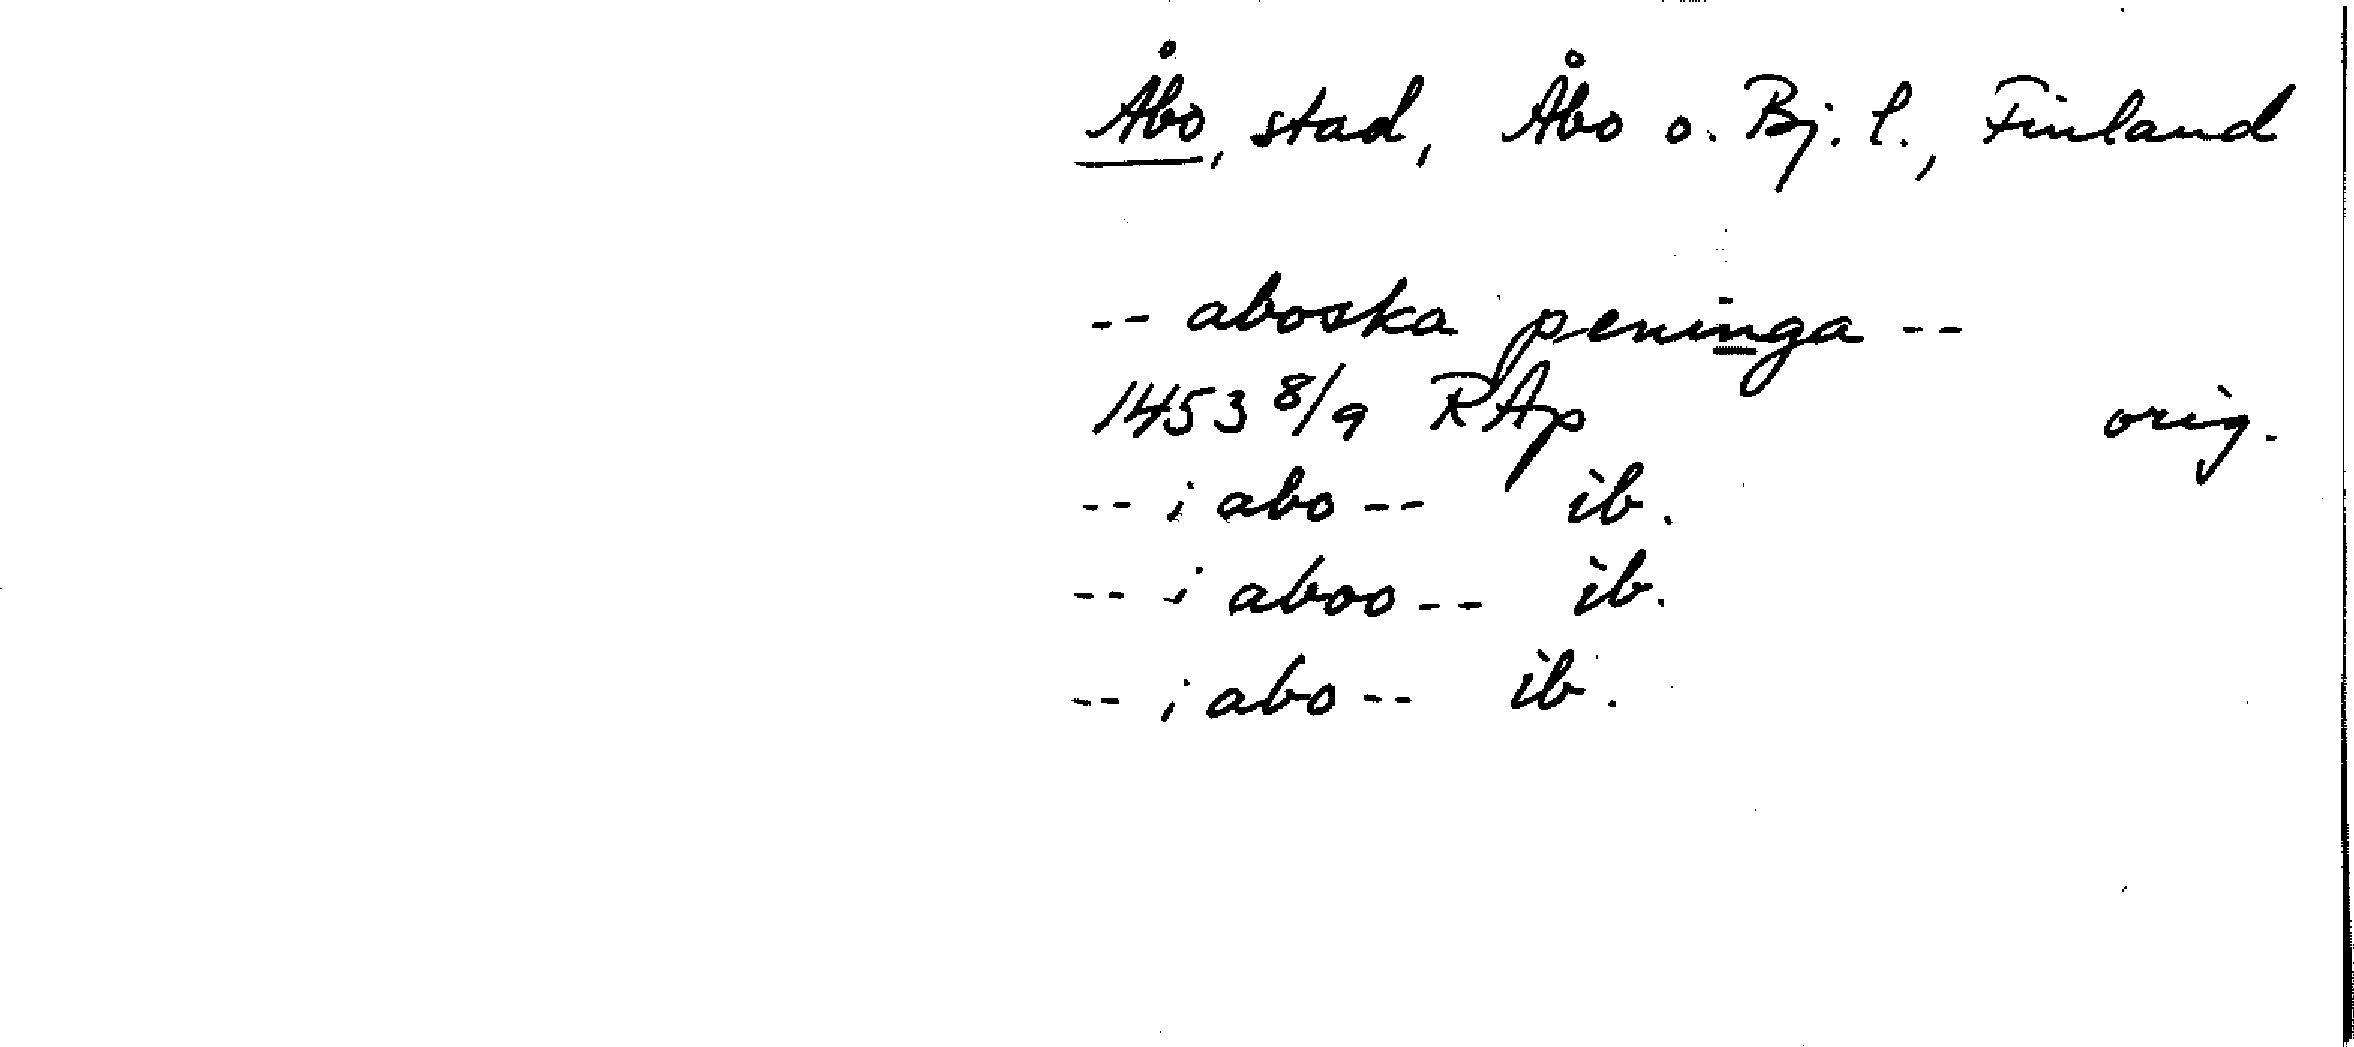 Åbo, stad, Åbo o. Bj. l., Finland
-- aboska peninga --
1453 8/9 RAp orig.
-- i abo -- ib.
-- i aboo -- ib.
-- i abo -- ib.